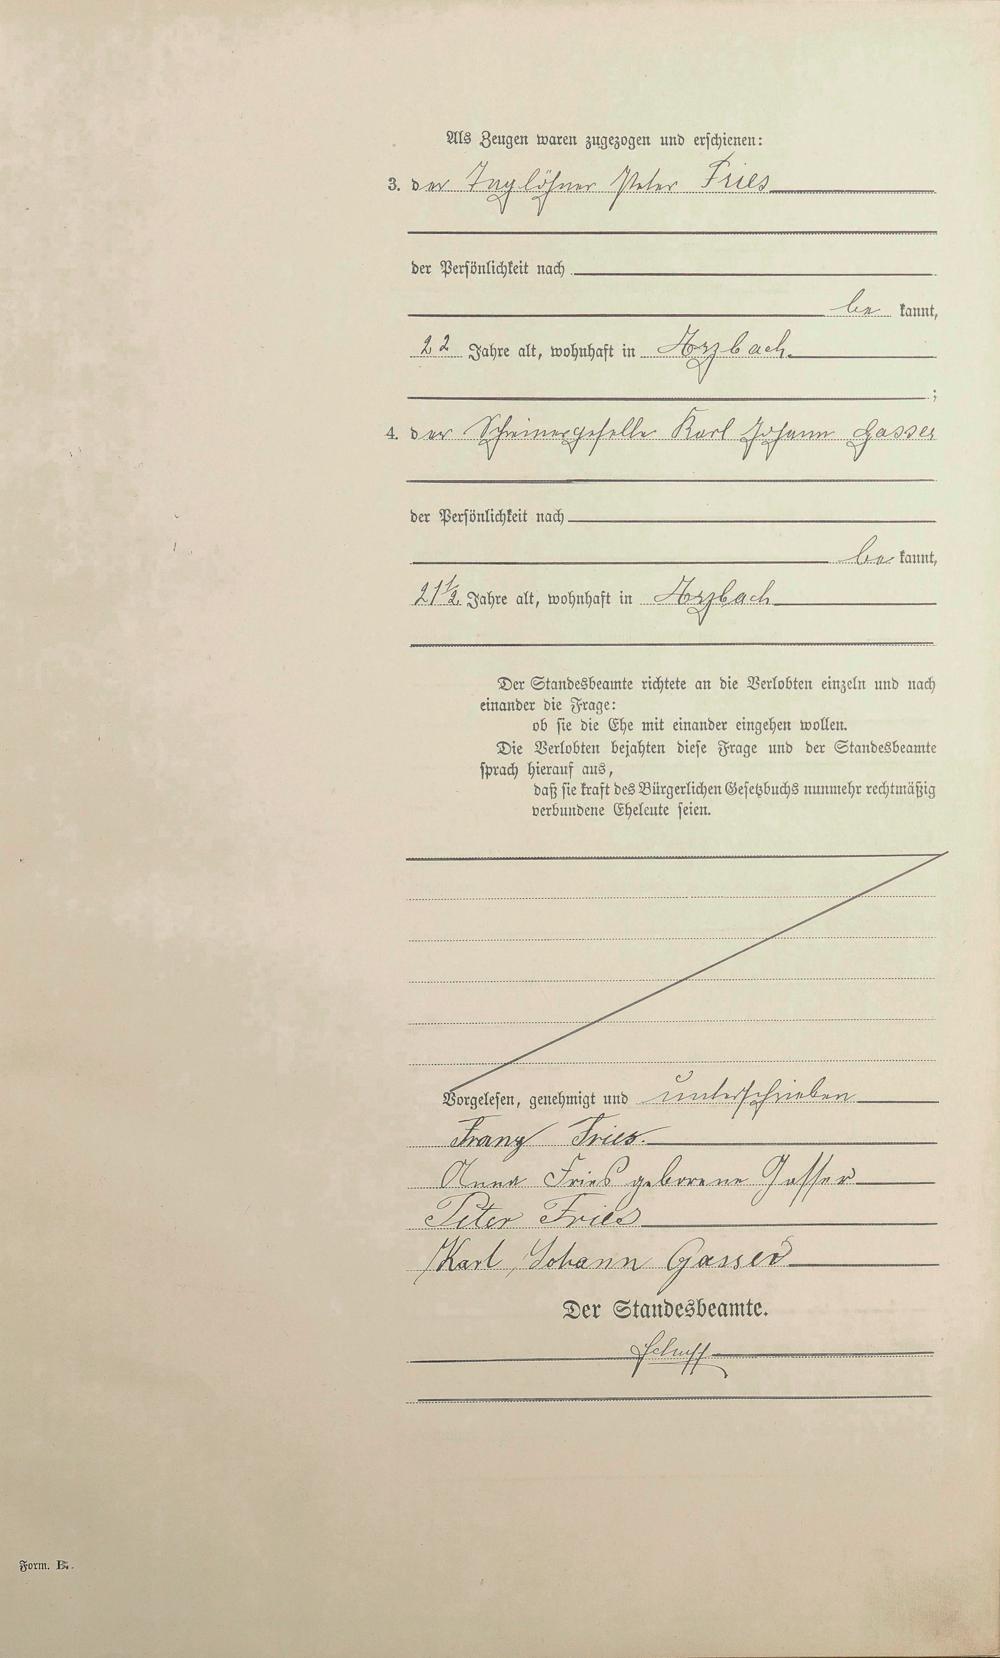 Als Zeugen waren zugezogen und erschienen:
3. der Taglöhner Peter Fries
der Persönlichkeit nach
be kannt,
22 Jahre alt, wohnhaft in Arzbach
;
4. der Schreinergeselle Karl Johann Gasser
der Persönlichkeit nach
be kannt,
21 1/2 Jahre alt, wohnhaft in Arzbach
Der Standesbeamte richtete an die Verlobten einzeln und nach
einander die Frage:
ob sie die Ehe mit einander eingehen wollen.
Die Verlobten bejahten diese Frage und der Standesbeamte
sprach hierauf aus,
daß sie kraft des Bürgerlichen Gesetzbuchs nunmehr rechtmäßig
verbundene Eheleute seien.
Vorgelesen, genehmigt und unterschrieben
Franz Fries.
Anna Fries geborene Gasser
Peter Fries
Karl Johann Gasser
Der Standesbeamte.
Form. B.